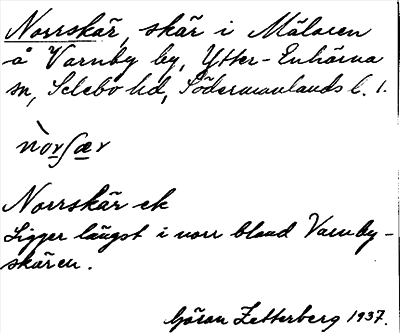 Norrskär, skär i Mälaren
å Varnby by, Ytter-Enhörna
sn, Selebo hd, Södermanlands l. 1.
nòrʃær
Norrskär ek
Ligger längst i norr bland Varnby-
skären.
Göran Zetterberg 1937.